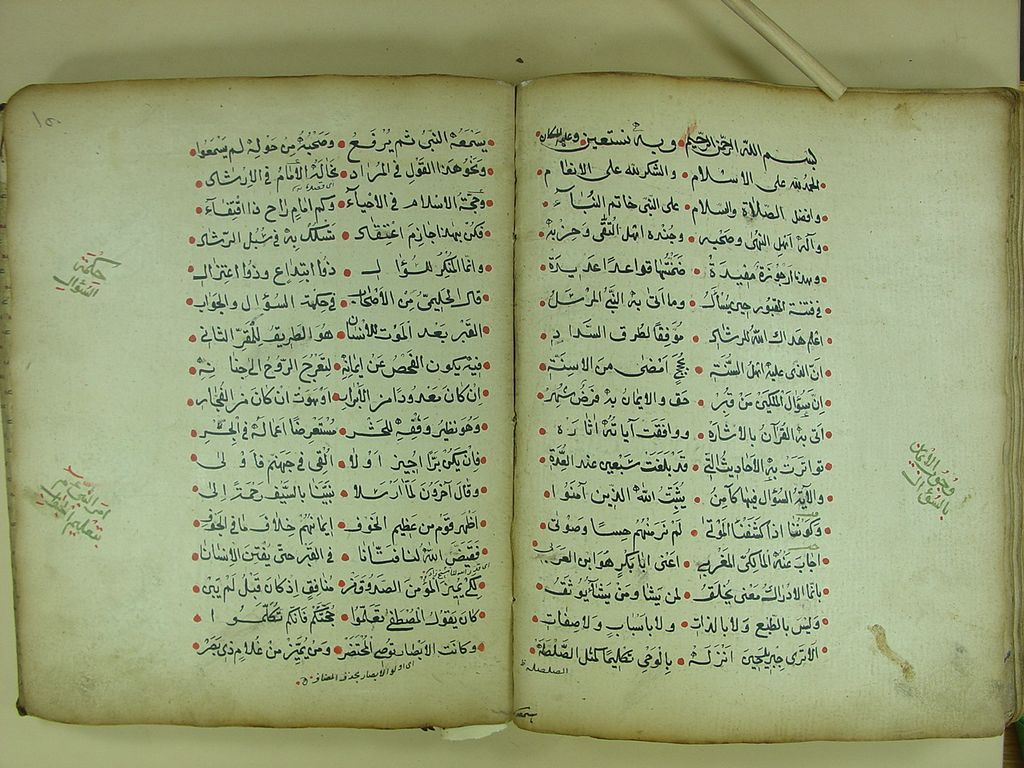 بسم الله الرحمن الرحيم وبه نستعين وعليه التكلان
الحمد لله على الاسلام والشكر لله على الانعام
وافضل الصلاة والسلام على النبي خاتم النباء
وآله اهل النهى وصحبه وجنده اهل التقى وحزبه
وهذه ارجوزة مفيدة ضمنتها قواعدا عديدة
في فتنة المقبور حين يسأل وما اتى به النبي المرسل
اعلم هداك الله للرشاد موفقا لطرق السداد
ان الذي عليه اهل السنة بحجج امضى من الاسنة
ان سؤال الملكين من قبر حق والايمان به فرض شهر
اتى به القرآن بالاشارة ووافقت آياته آثاره
تواترت به الاحاديث التي قد بلغت سبعين عند العدة
والآية السؤال فيها كامن يثبت الله الذين آمنوا
وكوننا اذا كشفنا الموتى لم نر منهم حسا وصوتا
اجاب عنه المالكي المغربي اعني ابا بكر هو ابن العربي
بانما الادراك معنى يخلق لمن يشا ومن يشاء يوثق
وليس بالطبع ولا بالذات ولا باسباب ولا صفات
الا ترى جبريل حين انزله بالوحي تكليما كمثل الصلصلة
الصلصله
وجوب الايمان بالسؤال
يسمعه النبي ثم يرفع وصحبه من حوله لم يسمعوا
ونحو هذا القول في المراد نحا له الامام في الارشاد
وحجة الاسلام في الاحياء وكم امام راح ذا اقتفاء
فكن بهذا جازم اعتقاد تسلك به في سبل الرشاد
واما المنكر للسؤال ذو ابتداع وذو اعتزال
قال الحليمي من الاصحاب وحكمة السؤال والجواب
القبر بعد الموت للانسان هو الطريق للمقر الثاني
فيه يكون الفحص عن ايمانه لتعرج الروح الى جنانه
ان كان معدودا من الابرار او يهوت ان كان من الفجار
وهو نظير وقفه للحشر مستعرضا اعماله في الجسر
فان يكن برا اجيز اولا القى في جهنم فاولى
وقال آخرون لما ارسلا نبينا بالسيف رحمة الى
اظهر قوم من عظيم الخوف ايمانهم خلاف ما في الجوف
فقيض الله لنا فتانا في القبر حتى يفتن الانسان
لكي يميز المؤمن الصدوق من منافق اذ كان قبل لم يبن
كان يقول المصطفى تعلموا حجتكم فانكم تكلموا
وكانت الابصار توصي المحتضر ومن يميز من غلام ذي بصر
اي اولو الابصار بحذف المضاف
حكمة السؤال